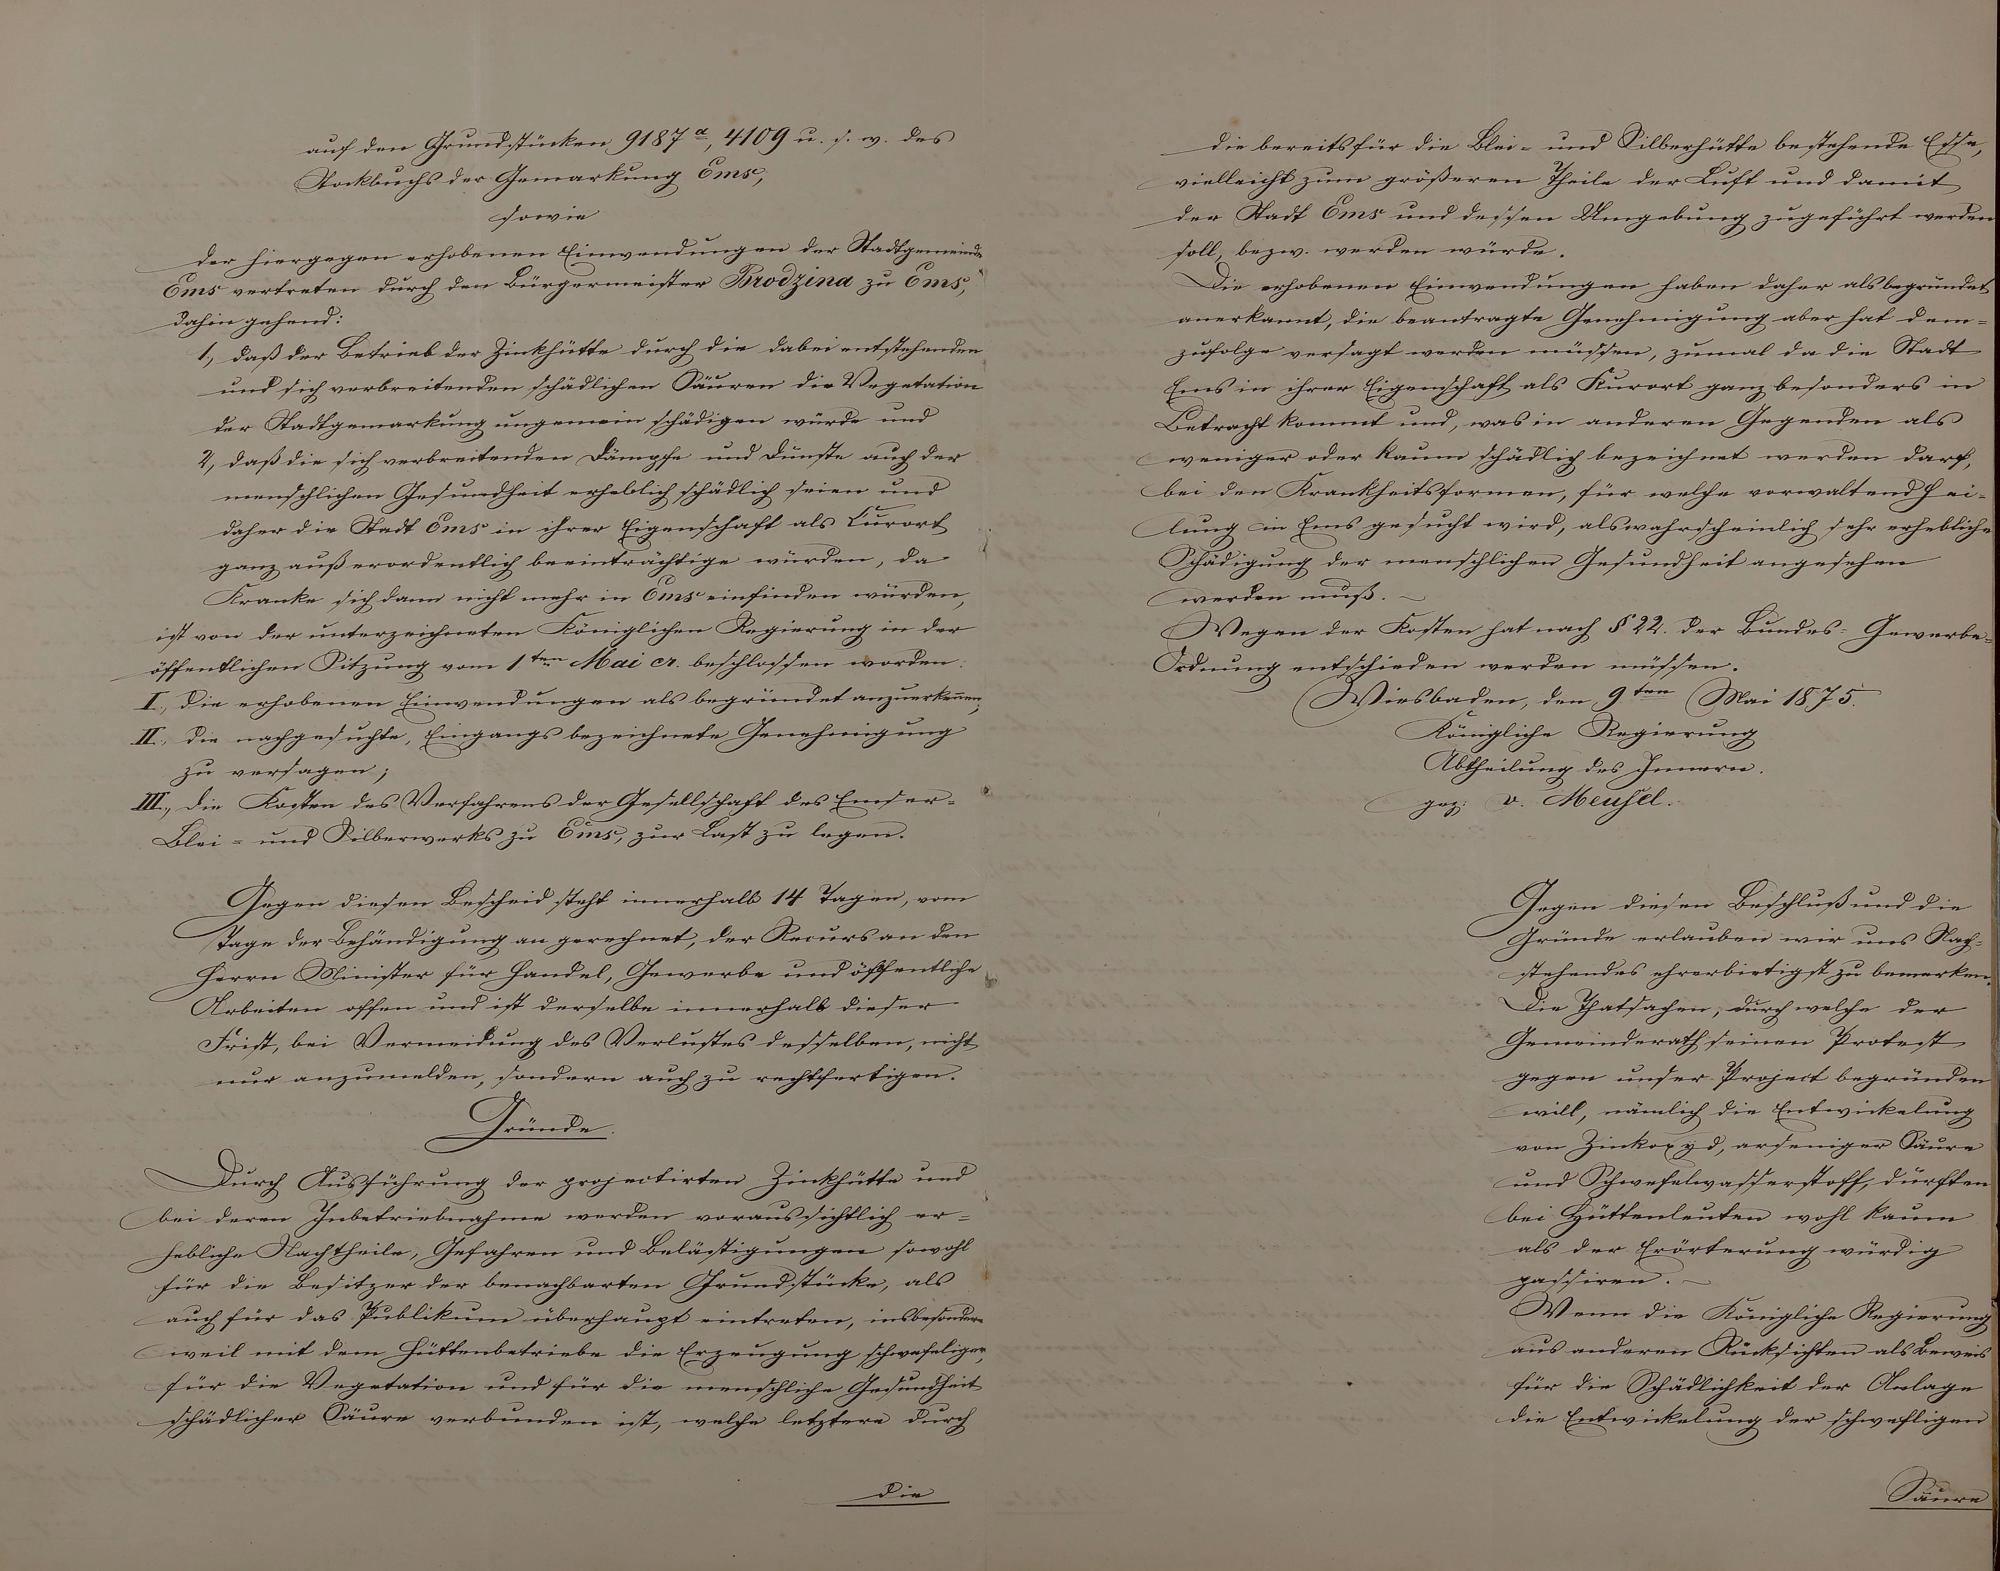 auf den Grundstücken 9187 a, 4109 u. s. w. des
Stockbuchs der Gemarkung Ems,
sowie
der hiergegen erhobenen Einwendungen der Stadtgemeinde
Ems vertreten durch den Bürgermeister Brodzina zu Ems,
dahin gehend:
1, daß der Betrieb der Zinkhütte durch die dabei entstehenden
und sich verbreitenden schädlichen Säuren die Vegetation
der Stadtgemarkung ungemein schädigen würde und
2, daß die sich verbreitenden Dämpfe und Dünste auch der
menschlichen Gesundheit erheblich schädlich seien und
daher die Stadt Ems in ihrer Eigenschaft als Curort
ganz außerordentlich beeinträchtige würden, da
Kranke sich dann nicht mehr in Ems einfinden würden,
ist von der unterzeichneten Königlichen Regierung in der
öffentlichen Sitzung vom 1ten Mai cr. beschlossen worden:
I., die erhobenen Einwendungen als begründet anzuerkennen;
II., die nachgesuchte, Eingangs bezeichnete Genehmigung
zu versagen;
III., die Kosten des Verfahrens der Gesellschaft des Emser-
Blei- und Silberwerks zu Ems, zur Last zu legen.
Gegen diesen Bescheid steht innerhalb 14 Tagen, vom
Tage der Behändigung an gerechnet, der Recurs an den
Herrn Minister für Handel, Gewerbe und öffentliche
Arbeiten offen und ist derselbe innerhalb dieser
Frist, bei Vermeidung des Verlustes desselben, nicht
nur anzumelden, sondern auch zu rechtfertigen.
Gründe.
Durch Ausführung der projectirten Zinkhütte und
bei deren Inbetriebnahme werden voraussichtlich er-
hebliche Nachtheile, Gefahren und Belästigungen sowohl
für die Besitzer der benachbarten Grundstücke, als
auch für das Publikum überhaupt eintreten, insbesondere
weil mit dem Hüttenbetriebe die Erzeugung schwefeliger,
für die Vegetation und für die menschliche Gesundheit
schädlicher Säure verbunden ist, welche letztere durch
die
die bereits für die Blei- und Silberhütte bestehende Esse,
vielleicht zum größeren Theile der Luft und damit
der Stadt Ems und dessen Umgebung zugeführt werden
soll, bezw. werden würde.
Die erhobenen Einwendungen haben daher als begründet
anerkannt, die beantragte Genehmigung aber hat dem-
zufolge versagt werden müssen, zumal da die Stadt
Ems in ihrer Eigenschaft als Kurort ganz besonders in
Betracht kommt und, was in anderen Gegenden als
weniger oder kaum schädlich bezeichnet werden darf,
bei den Krankheitsformen, für welche vorwaltend Hei-
lung in Ems gesucht wird, als wahrscheinlich sehr erhebliche
Schädigung der menschlichen Gesundheit angesehen
werden muß. —
Wegen der Kosten hat nach § 22. der Bundes-Gewerbe-
Ordnung entschieden werden müssen.
Wiesbaden, den 9ten Mai 1875.
Königliche Regierung
Abtheilung des Innern.
gez: v. Meusel.
Gegen diesen Beschluß und die
Gründe erlauben wir uns Nach-
stehendes ehrerbietigst zu bemerken.
Die Thatsachen, durch welche der
Gemeinderath seinen Protest
gegen unser Project begründen
will, nämlich die Entwickelung
von Zinkoxyd, arseniger Säure
und Schwefelwasserstoff, dürften
bei Hüttenleuten wohl kaum
als der Erörterung würdig
passiren. —
Wenn die Königliche Regierung
aus anderen Rücksichten als Beweis
für die Schädlichkeit der Anlage
die Entwickelung der schwefligen
Säure